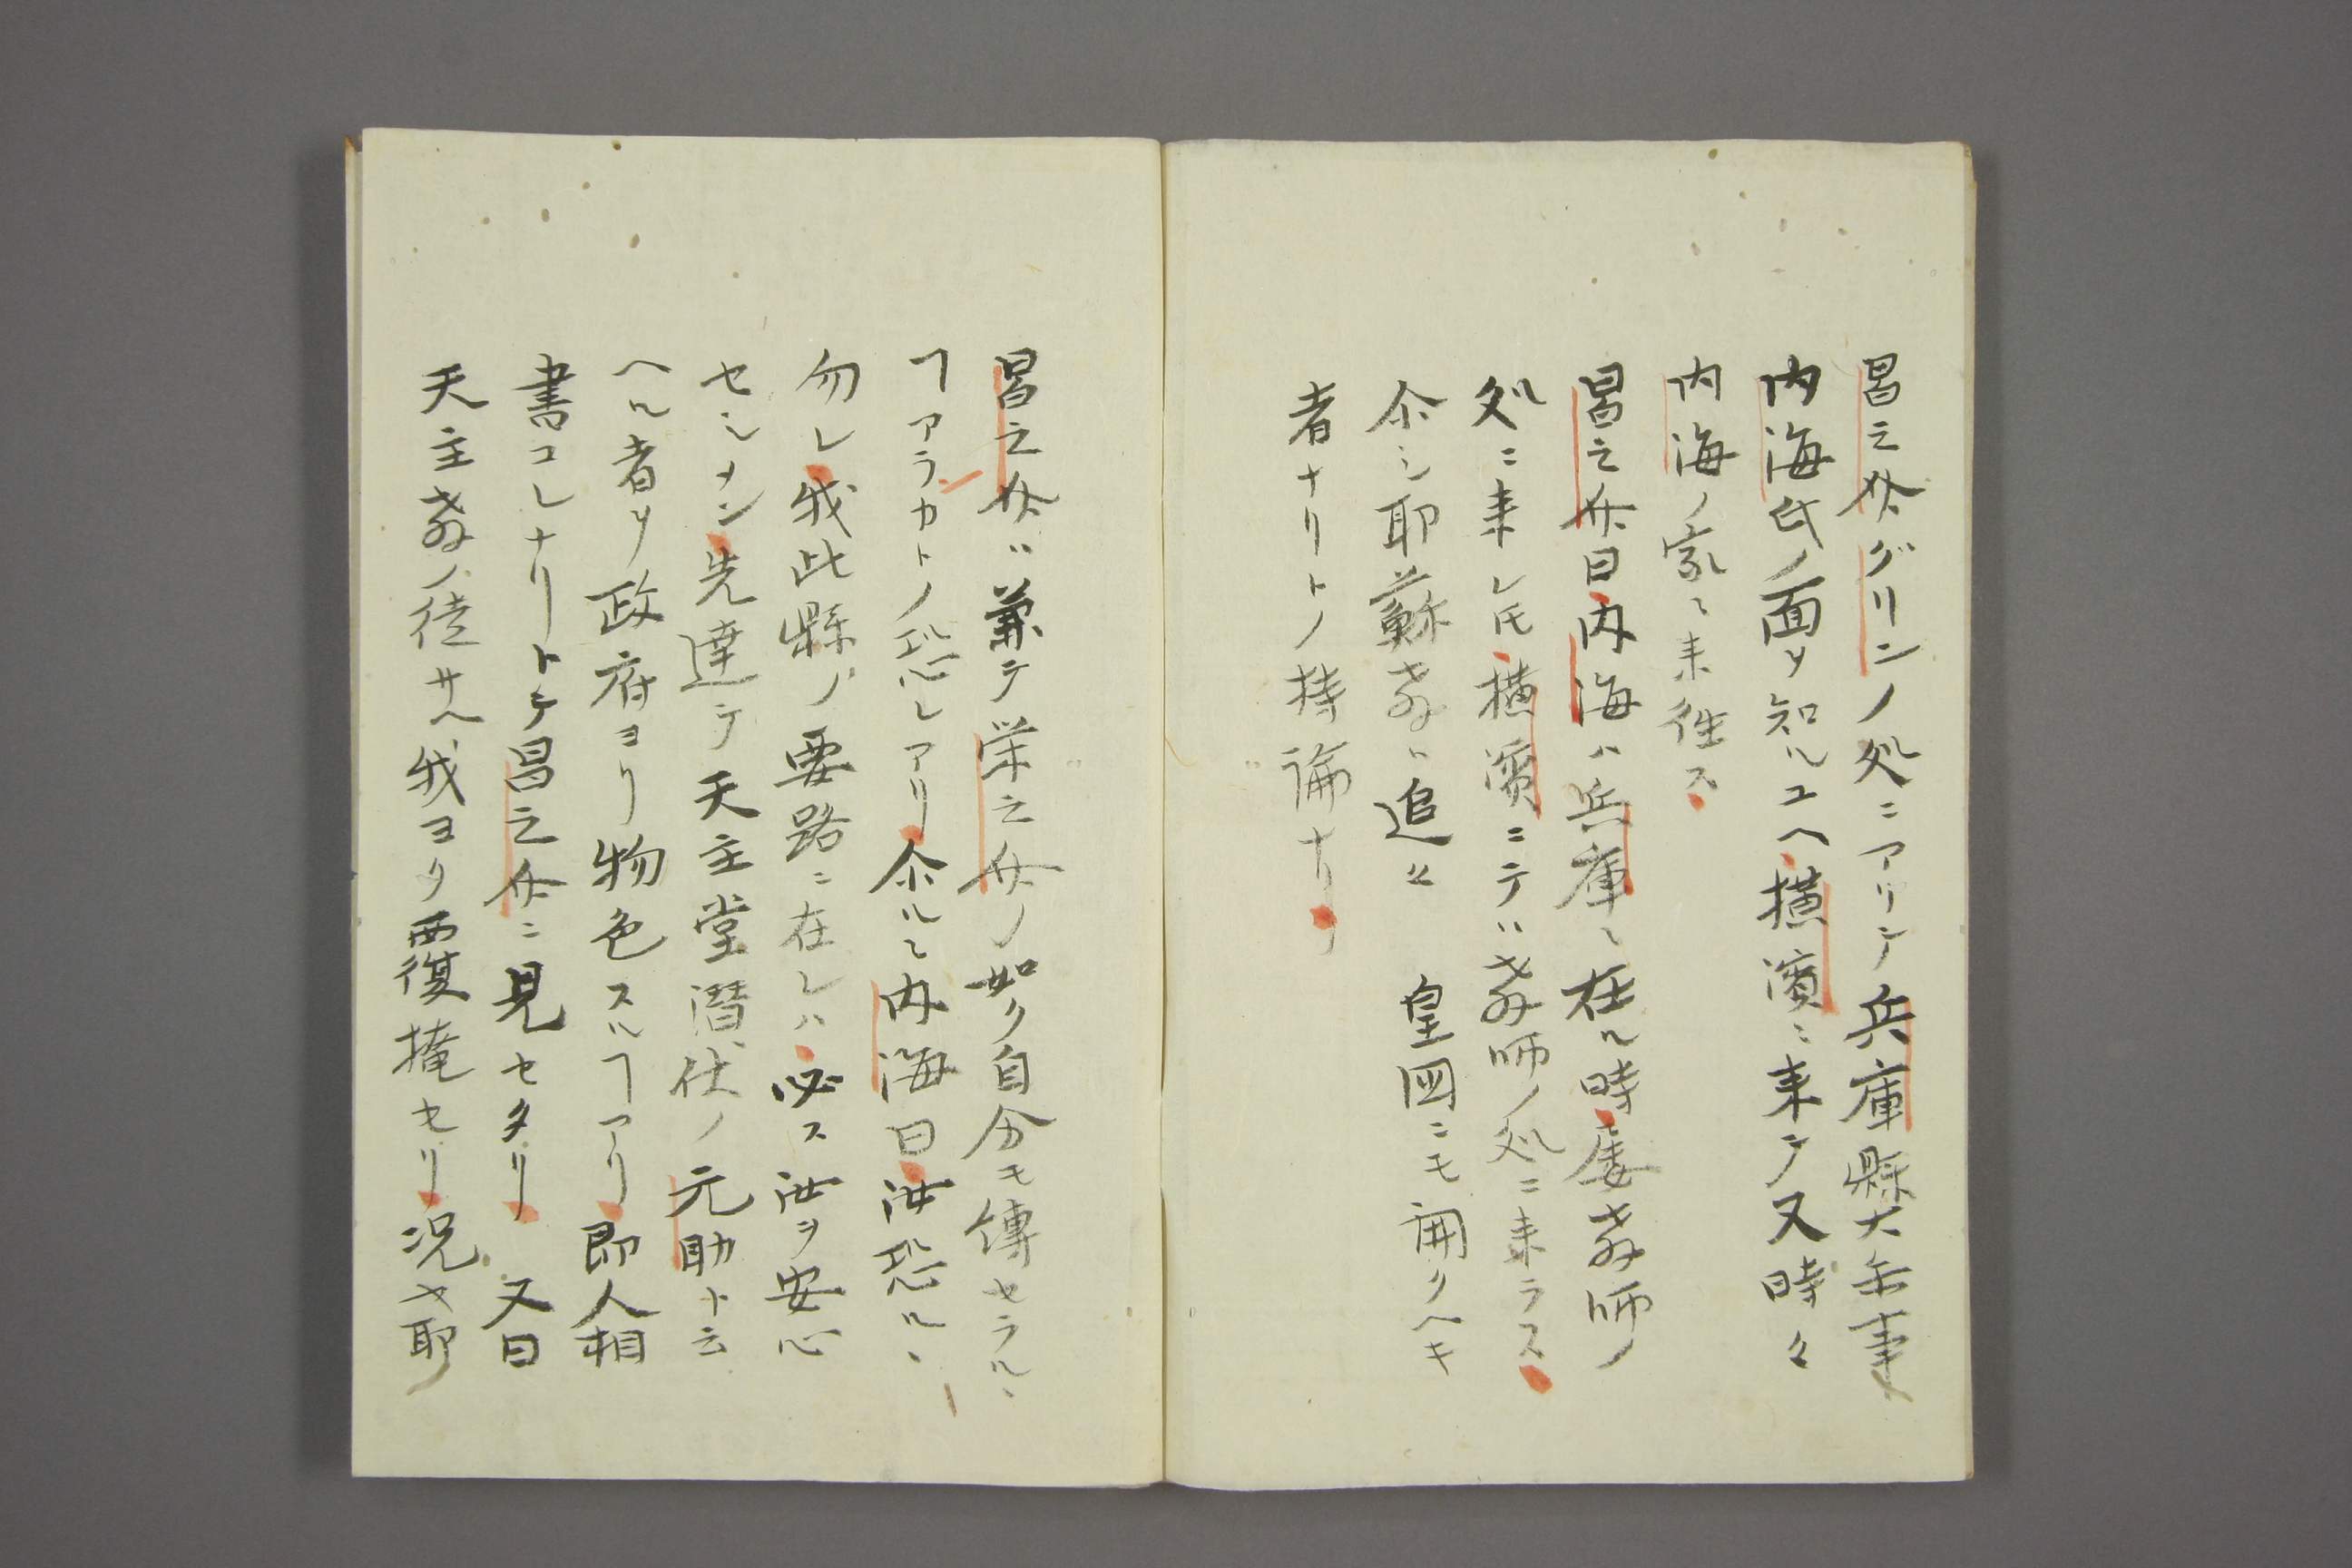 昌之介グリンノ処ニアリシテ兵庫縣大参事
内海氏ノ面ヲ知ルユヘ横濱ニ来テ又時々
内海ノ家ニ来往ス
昌之介曰内海ハ兵庫ニ在ル時屡教師ノ
処ニ来レ𪜈横濱ニテハ教師ノ処ニ来ラス
尒シ耶蘇教ハ追々 皇国ニモ開クヘキ
者ナリトノ持論ナリ
昌之介ハ兼テ栄之介ノ如ク自分モ傳セラルヽ
ヿアラカトノ恐レアリ尒ルニ内海曰汝恐ルヽ
勿レ我此縣ノ要路ニ在レハ必ス汝ヲ安心
セシメン先達テ天主堂潜伏ノ元助ト云
ヘル者ヲ政府ヨリ物色スルヿアリ即人相
書コレナリトテ昌之介ニ見セタリ 又曰
天主教ノ徒サヘ我ヨク覆掩セリ況ヤ耶